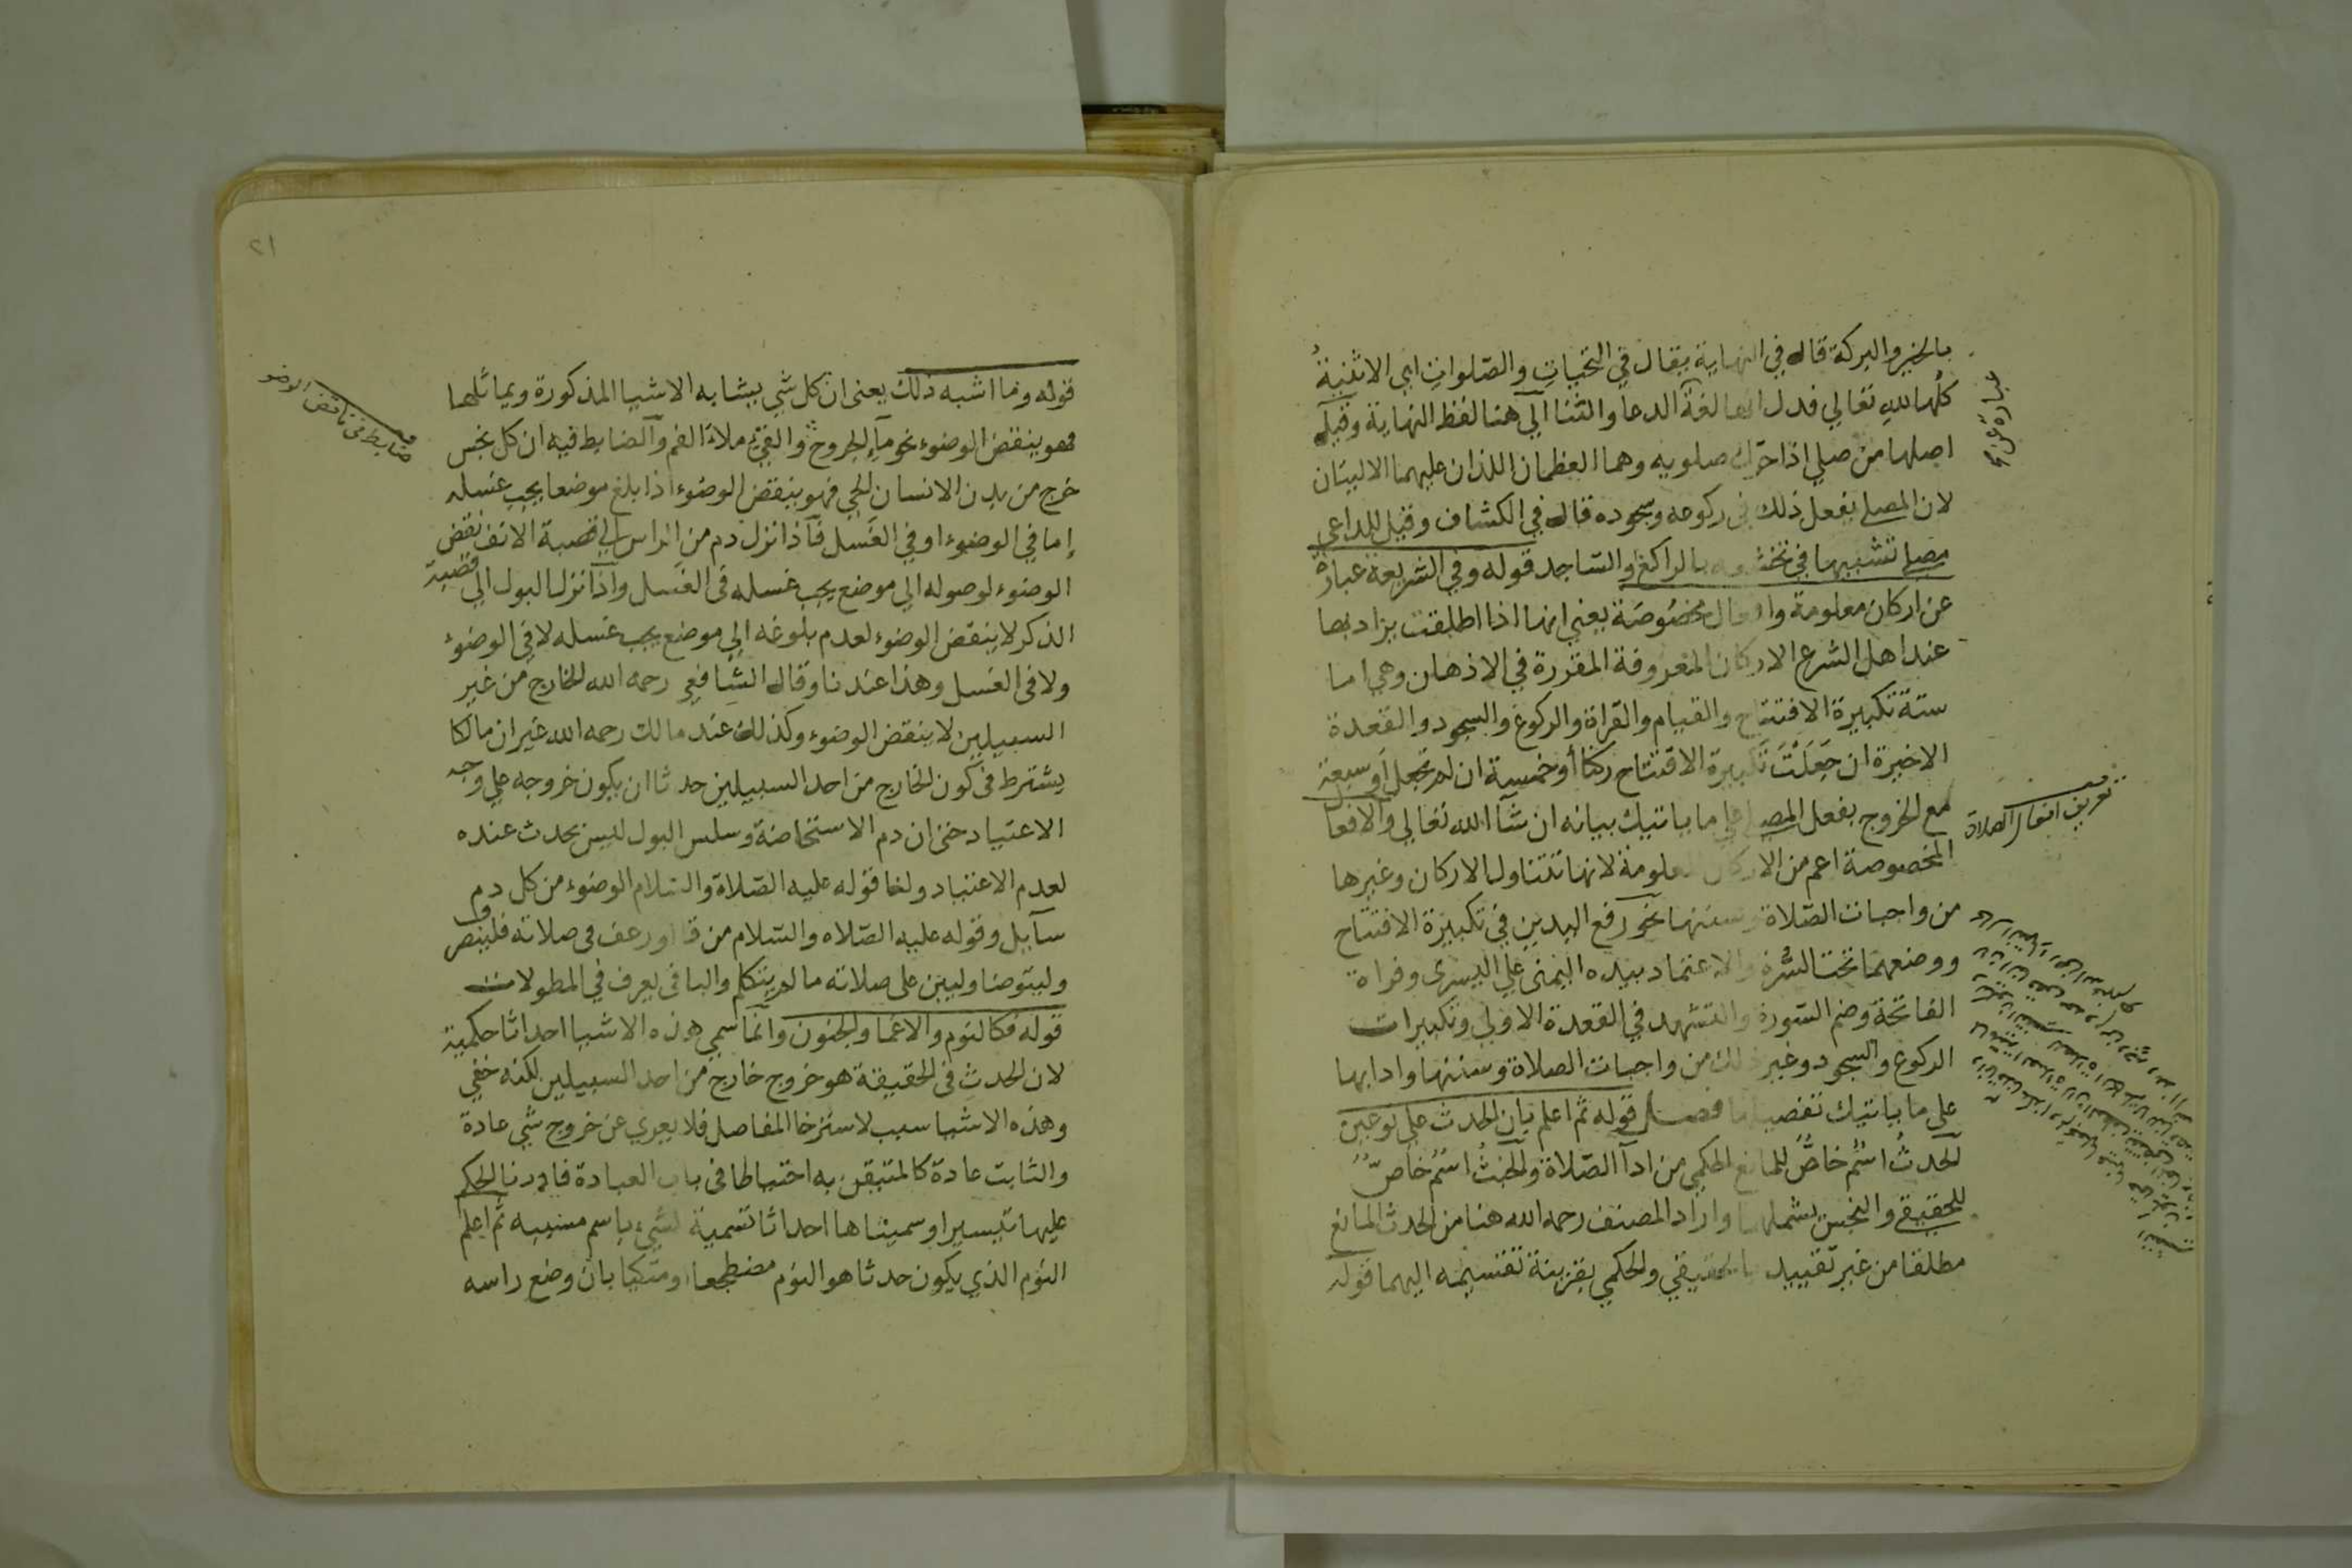 بالخير والبركة قال في النهاية يقال في التحيات والصلوات اي الاثنية
كلها لله تعالي فدل الدعا والثنا الي هنا لفظ النهاية وقيل
اصلها من صلي اذا حرك صلويه وهما العظمان اللذان عليهما الاليتان
لان المصلي يفعل ذلك في ركوعه وسجوده قال في الكشاف وقيل للداعي
مصلي تشبيها في تخشعه بالراكع والساجد قوله وفي الشريعة عبارة
عن اركان معلومة وافعال مخصوصة يعني انها اذا اطلقت يراد بها
عند اهل الشرع الاركان المعروفة المقررة في الاذهان وهي اما
ستة تكبيرة الافتتاح والقيام والقراة والركوع والسجود والقعدة
الاخيرة ان جعلت تكبيرة الافتتاح ركنا أو خمسة ان لم تجعل أو سبعة
مع الخروج بفعل المصلي علي ما ياتيك بيانه ان شآ الله تعالي والافعال
المخصوصة اعم من الاركان المعلومة لانها تتناول الاركان وغيرها
من واجبات الصلاة وسننها نحو رفع اليدين في تكبيرة الافتتاح
ووضعهما تحت السرة والاعتماد بيده اليمنى علي اليسرى وقراة
الفاتحة وضم السورة والتشهد في القعدة الاولي وتكبيرات
الركوع والسجود وغير ذلك من واجبات الصلاة وسننها وادابها
على ما ياتيك تفصيلها فصل قوله ثم اعلم بان الحدث على نوعين
الحدث اسم خاص للمانع الحكمي من ادآ الصلاة والخبث اسم خاص
للحقيقي والنجس يشملهما واراد المصنف رحمه الله هنا من الحدث المانع
مطلقا من غير تقييد بالحقيقي والحكمي بقرينة تقسيمه اليهما قوله
تعريف افعال الصلاة
٢١
قوله وما اشبه ذلك يعني ان كل شي يشابه الاشيا المذكورة ويماثلها
فهو ينقض الوضوء نحو مآ الجروح والقيء ملاء الفم والضابط فيه ان كل نجس
خرج من بدن الانسان الحي فهو ينقض الوضوء اذا بلغ موضعا يجب غسله
إما في الوضوء او في الغسل فاذا نزل دم من الراس الي قصبة الانف نقض
الوضوء لوصوله الي موضع يجب غسله في الغسل واذا نزل البول الي قصبة
الذكر لا ينقض الوضوء لعدم بلوغه الي موضع يجب غسله لا في الوضوء
ولا في الغسل وهذا عندنا وقال الشافعي رحمه الله الخارج من غير
السبيلين لا ينقض الوضوء وكذلك عند مالك رحمه الله غير ان مالكا
يشترط في كون الخارج من احد السبيلين حدثا ان يكون خروجه علي وجه
الاعتياد حتى ان دم الاستحاضة وسلس البول ليس بحدث عنده
لعدم الاعتياد ولنا قوله عليه الصلاة والسلام الوضوء من كل دم
سآيل وقوله عليه الصلاه والسلام من قا او رعف في صلاته فلينصرف
وليتوضا وليبن على صلاته ما لم يتكلم والباقي يعرف في المطولات
قوله فكالنوم والاغما والجنون وانما سمي هذه الاشيا احداثا حكمية
لان الحدث في الحقيقة هو خروج خارج من احد السبيلين لكنه خفي
وهذه الاشيا سبب لاسترخا المفاصل فلا يعري عن خروج شي عادة
والثابت عادة كالمتيقن به احتياطا في باب العبادة فادرنا الحكم
عليها تيسيرا وسميناها احداثا تسمية للشيء باسم مسببه ثم اعلم
النوم الذي يكون حدثا هو النوم مضطجعا او متكيا بان وضع راسه
ضابط في ناقض الوضو